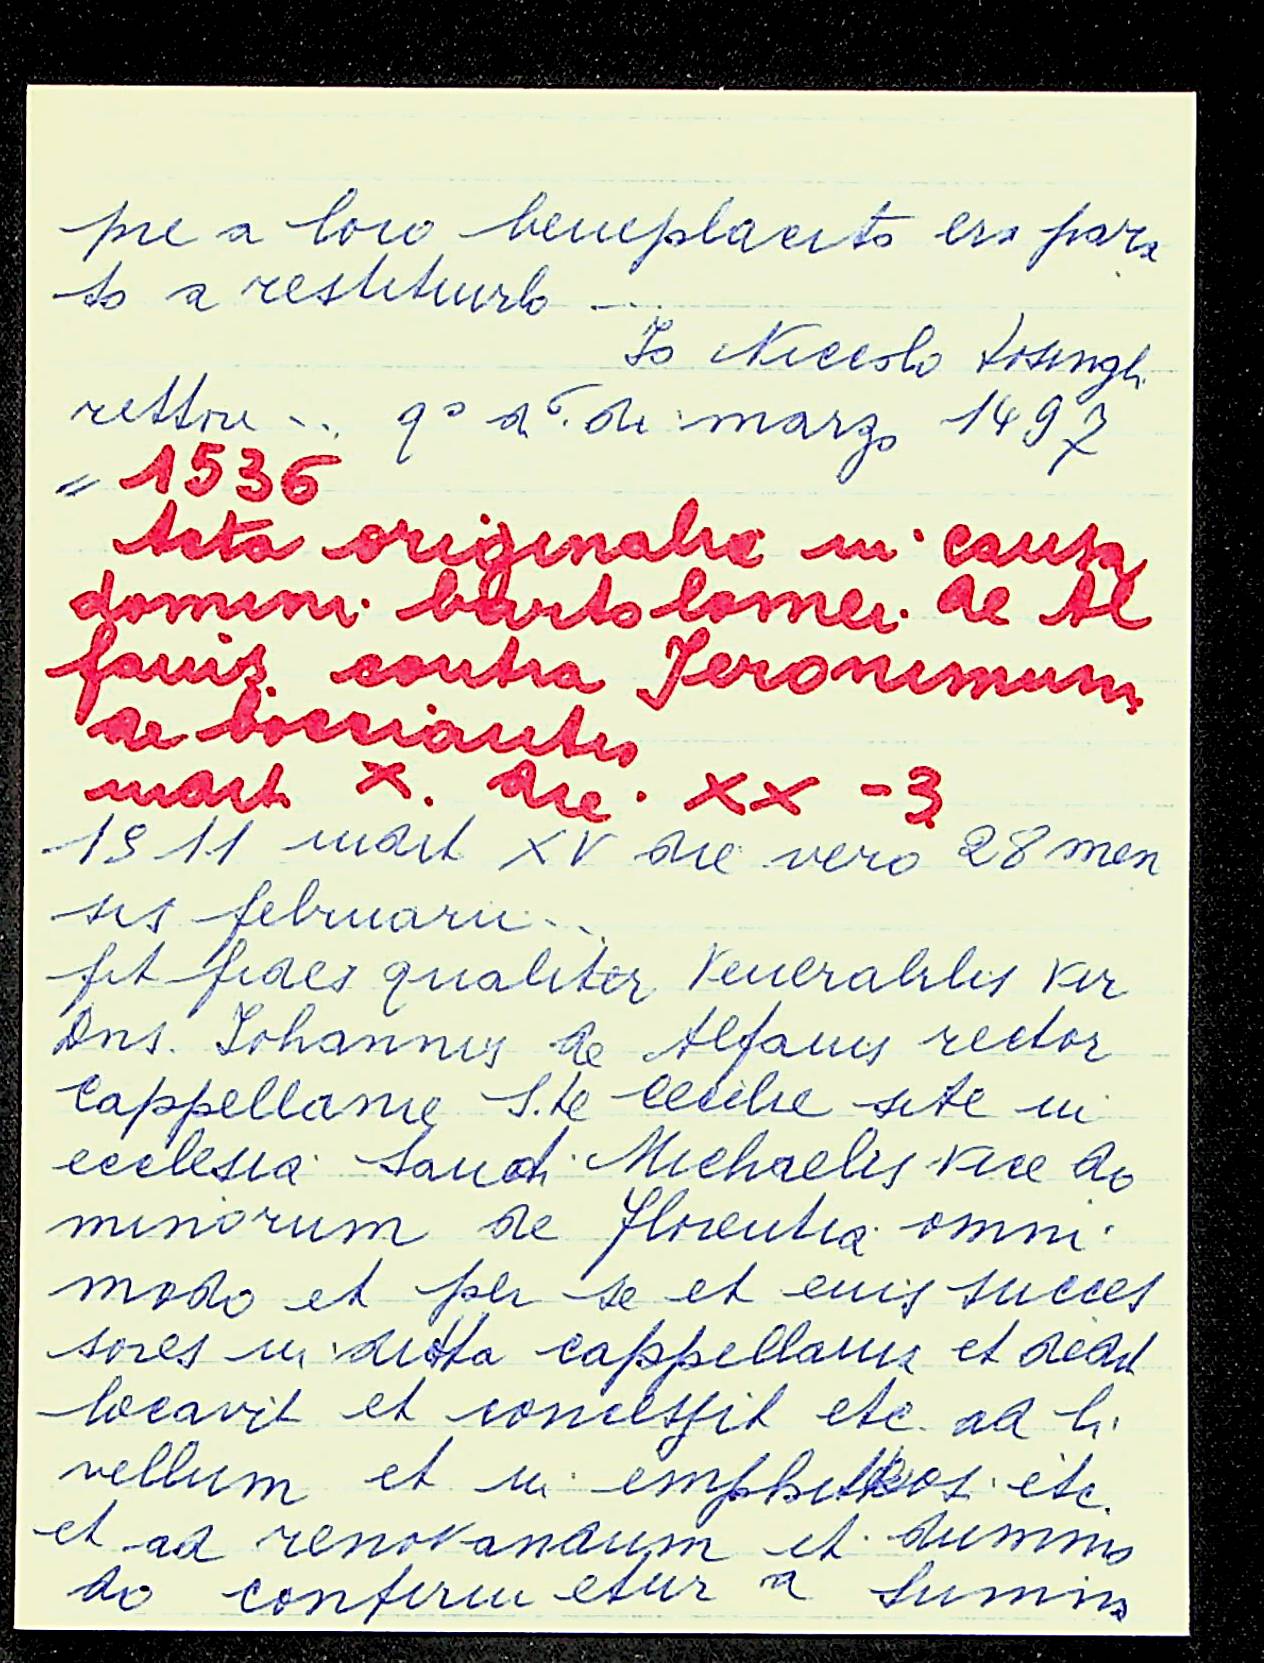 pre a loro beneplacito era para
to a restituirlo ...
Io Niccolo Losinghi
rettore ... qo dì 6. di marzo 1497
" 1536
Acta originalia in causa
domini bartolomei de Al
fanis contra Jeronimum
de
indict X. die XX - 3
1511 indict XV die vero 28 men
sis februarii...
fit fides qualiter Venerabilis Vir
Dns. Iohannis de Alfanis rector
Cappellanie S.te Cecilie site in
ecclesia Sancti Michaelis Vice do
minorum de Florentia omni
modo et per se et euis succes
sores in ditta cappellania et dedit
locavit et concessit etc. ad li
vellum et in etc.
et ad renovandum et dummo
do confirmetur a Summo